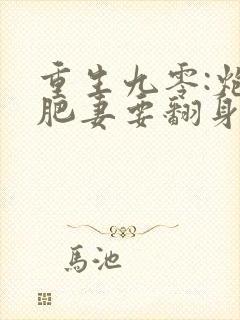 重生九零:炮
肥妻要翻身
馬池